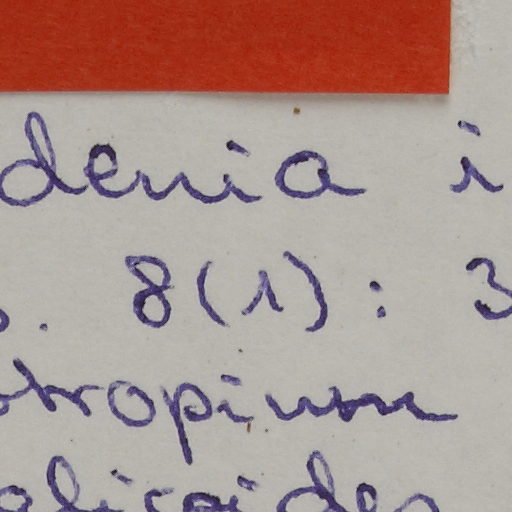 denia i
. 8(1): 3
otropium
alicoides